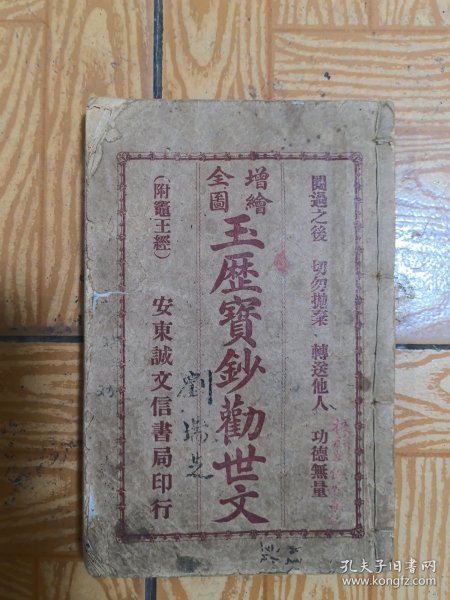 閱過之後 切勿拋棄 轉送他人 功德無量
增繪
全圖
玉歷寶鈔勸世文
(附竈王經)
安東誠文信書局印行
劉瑞先
孔夫子旧书网
www.kongfz.com